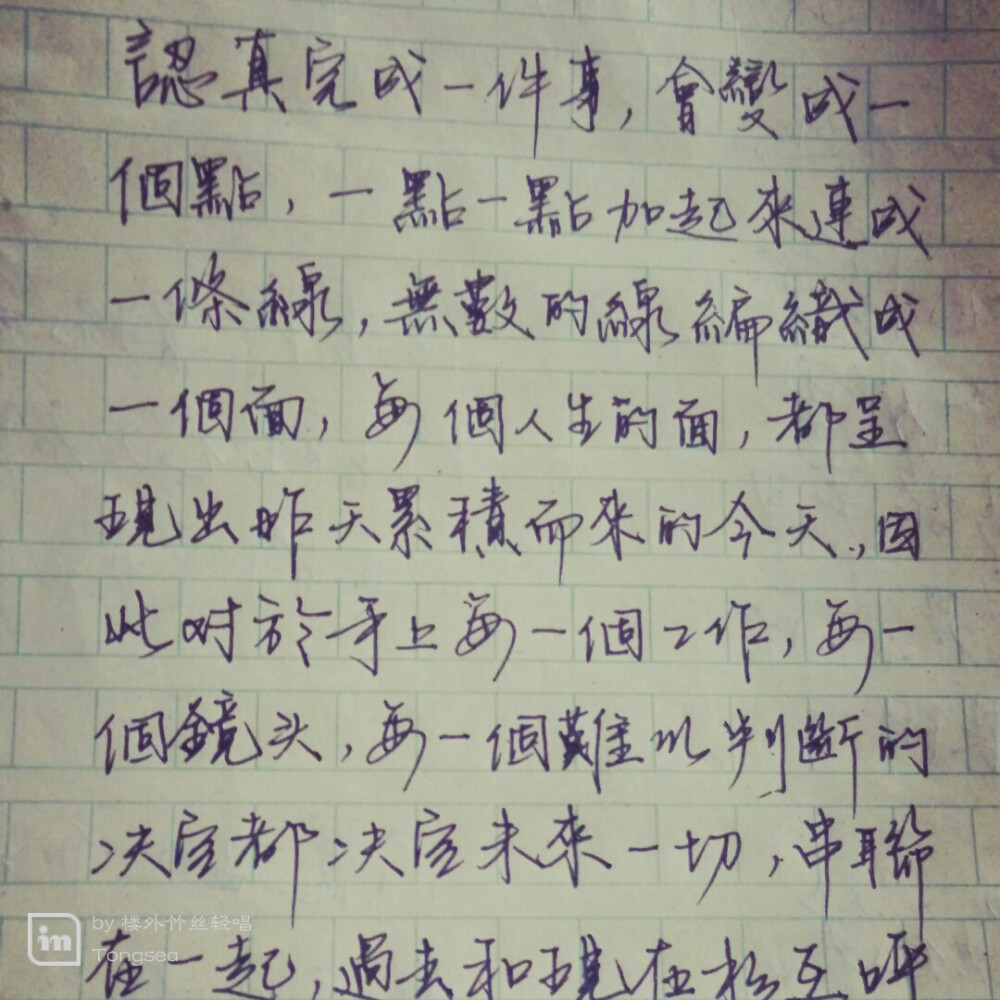 認真完成一件事,會變成一
個點,一點一點加起來連成
一條線,無數的線編織成
一個面,每個人生的面,都呈
現出昨天累積而來的今天.,因
此对於手上每一個工作,每一
個鏡头,每一個難以判斷的
决定都决定未來一切,串聯
在一起,過去和現在相互呼
im by 楼外竹丝轻唱
Tongsea